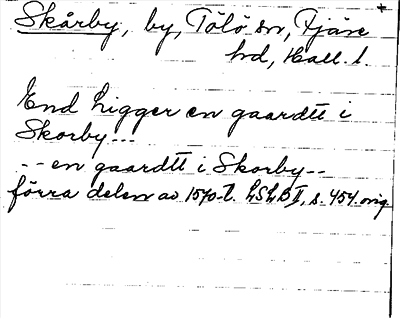 Skårby, by, Tölö sn, Fjäre
hd, Hall. l.
End ligger en gaardtt i
Skorby---
-- en gaardtt i Skorby--
förra delen av 1570-t. LSLB II, s. 454. orig